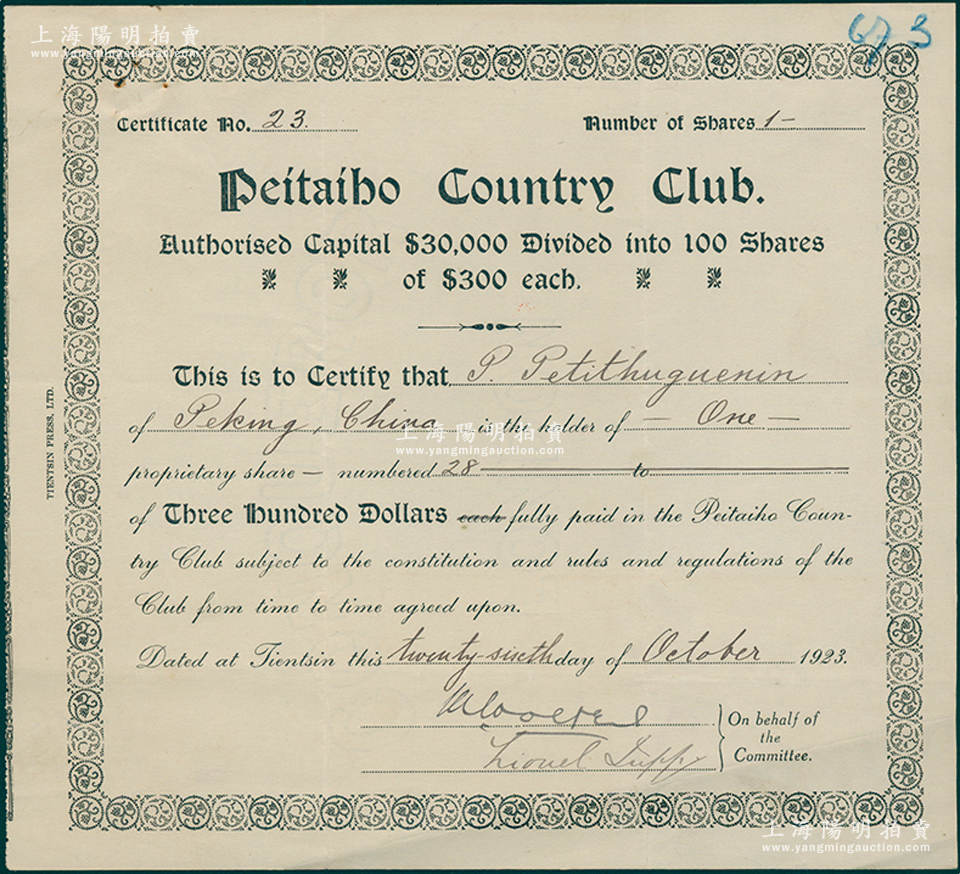 上海陽明拍賣
www.yangmingauction.com
673
Certificate No. 23. Number of Shares 1-
Peitaiho Country Club.
Authorised Capital $30,000 Divided into 100 Shares
of $300 each.
This is to Certify that P. Petithuguenin
of Peking, China is the holder of - One -
上海陽明拍賣
www.yangmingauction.com
proprietary share - numbered 28 to
of Three Hundred Dollars each fully paid in the Peitaiho Coun-
try Club subject to the constitution and rules and regulations of the
Club from time to time agreed upon.
Dated at Tientsin this twenty-sixth day of October 1923.
On behalf of
the
Committee.
Lionel
TIENTSIN PRESS, LTD.
上海陽明拍賣
www.yangmingauction.com